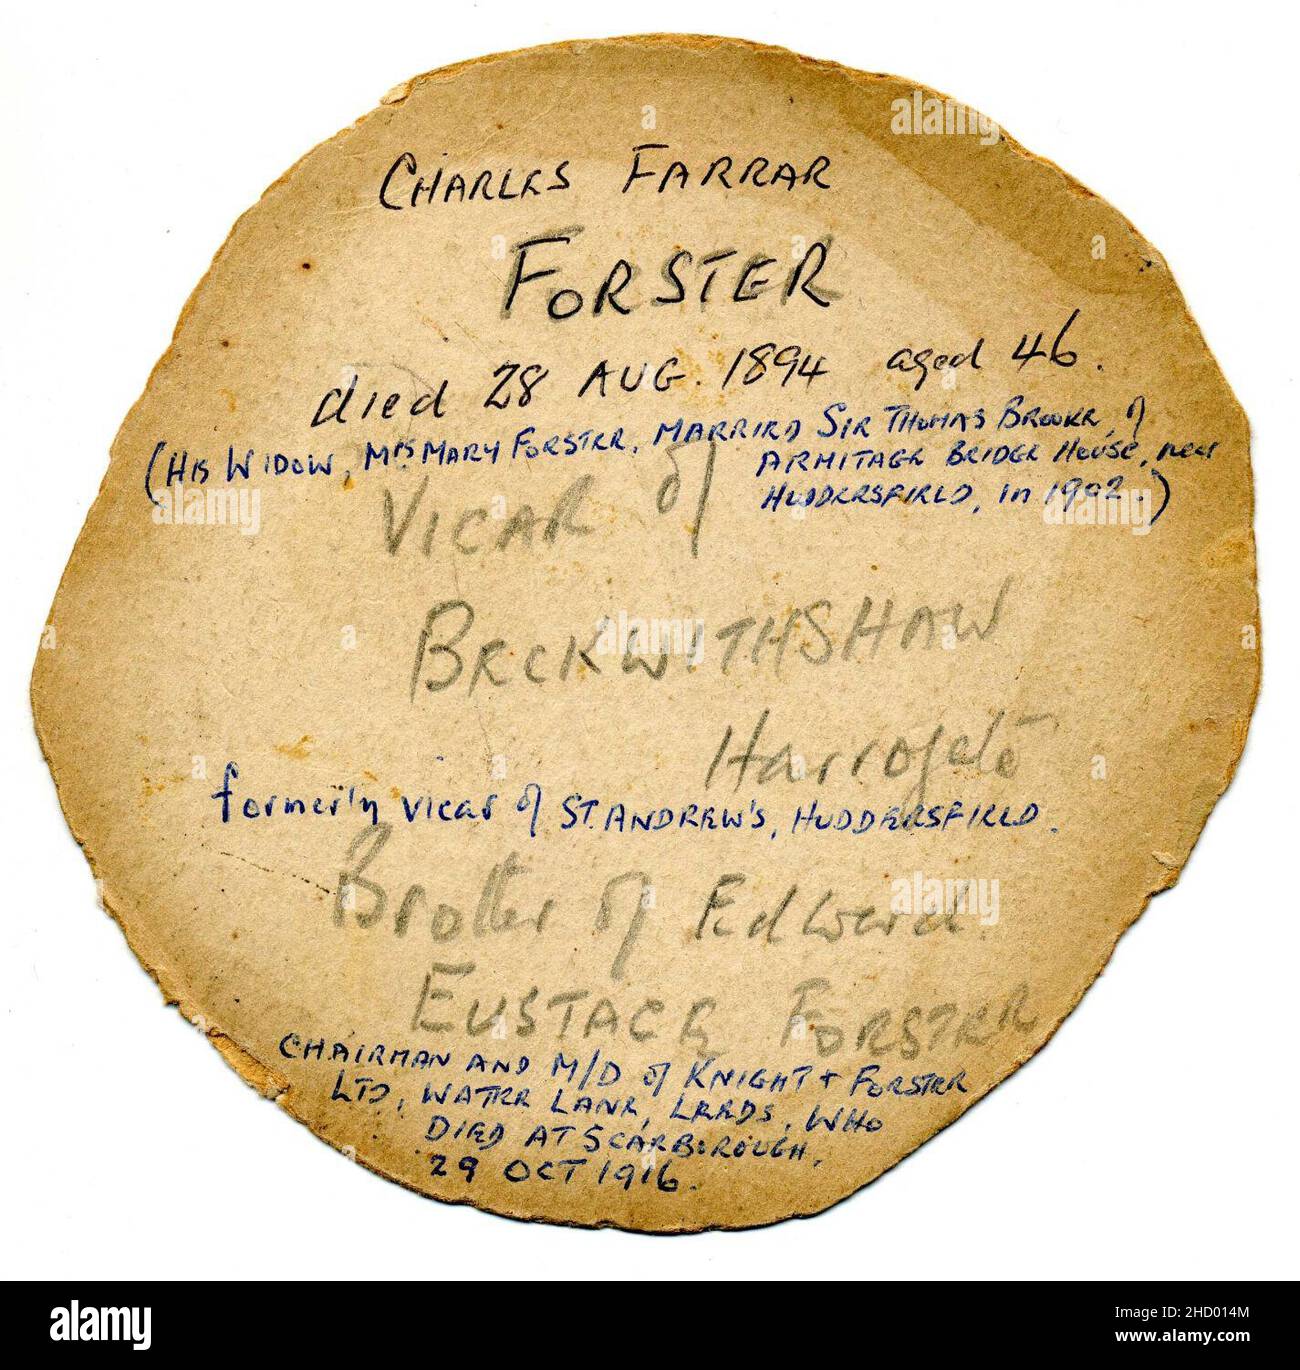 CHARLES FARRAR
FORSTER
died 28 AUG. 1894 aged 46.
(HIS WIDOW, Mrs MARY FORSTER, MARRIED SIR THOMAS BROOKE, of
ARMITAGE BRIDGE HOUSE, near
HUDDERSFIELD, in 1902.)
VICAR of
BECKWITHSHAW
Harrogate
formerly vicar of ST. ANDREW'S, HUDDERSFIELD.
Brother of Edward
EUSTACE FORSTER
CHAIRMAN AND M/D of KNIGHT + FORSTER
LTD, WATER LANE, LEEDS, WHO
DIED AT SCARBOROUGH,
29 OCT 1916.
alamy
a
alamy
a
alamy
alamy
alamy
a
alamy
a
alamy
alamy
alamy
a
alamy
Image ID: 2HD014M
www.alamy.com